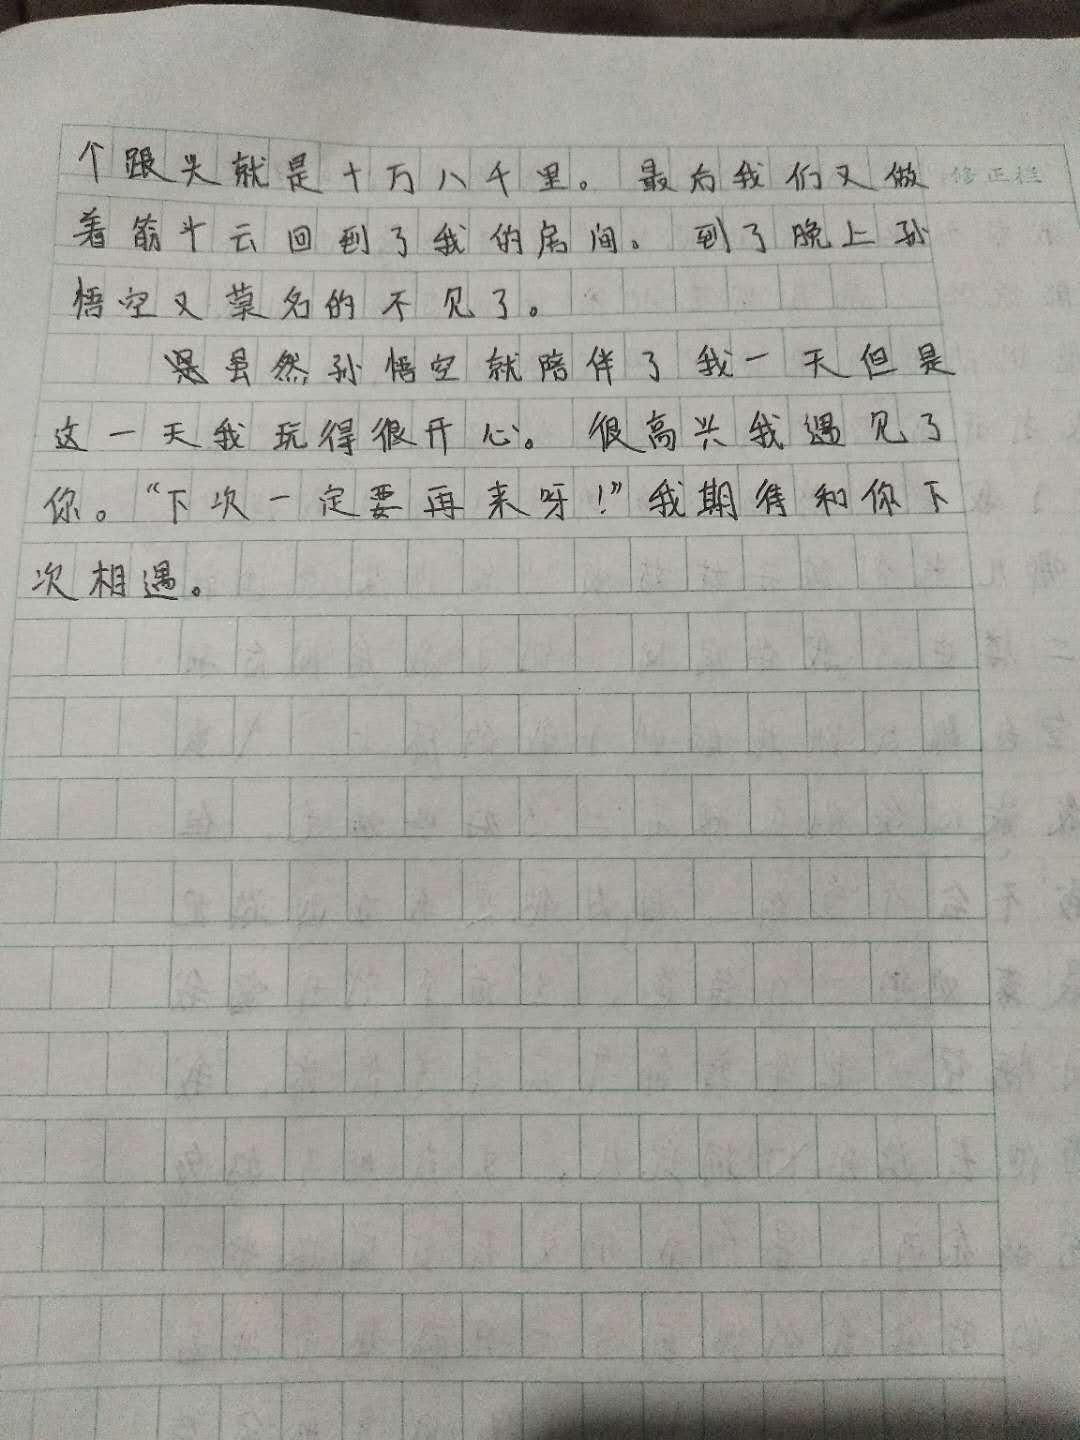 个跟头就是十万八千里。最后我们又做
修正栏
着筋斗云回到了我的房间。到了晚上孙
悟空又莫名的不见了。
虽然孙悟空就陪伴了我一天但是
这一天我玩得很开心。很高兴我遇见了
你。“下次一定要再来呀！”我期待和你下
次相遇。